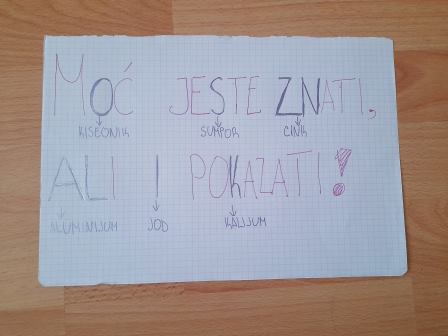 MOĆ JESTE ZNATI,
KISEONIK SUMPOR CINK
ALI I POKAZATI!
ALUMINIJUM JOD KALIJUM